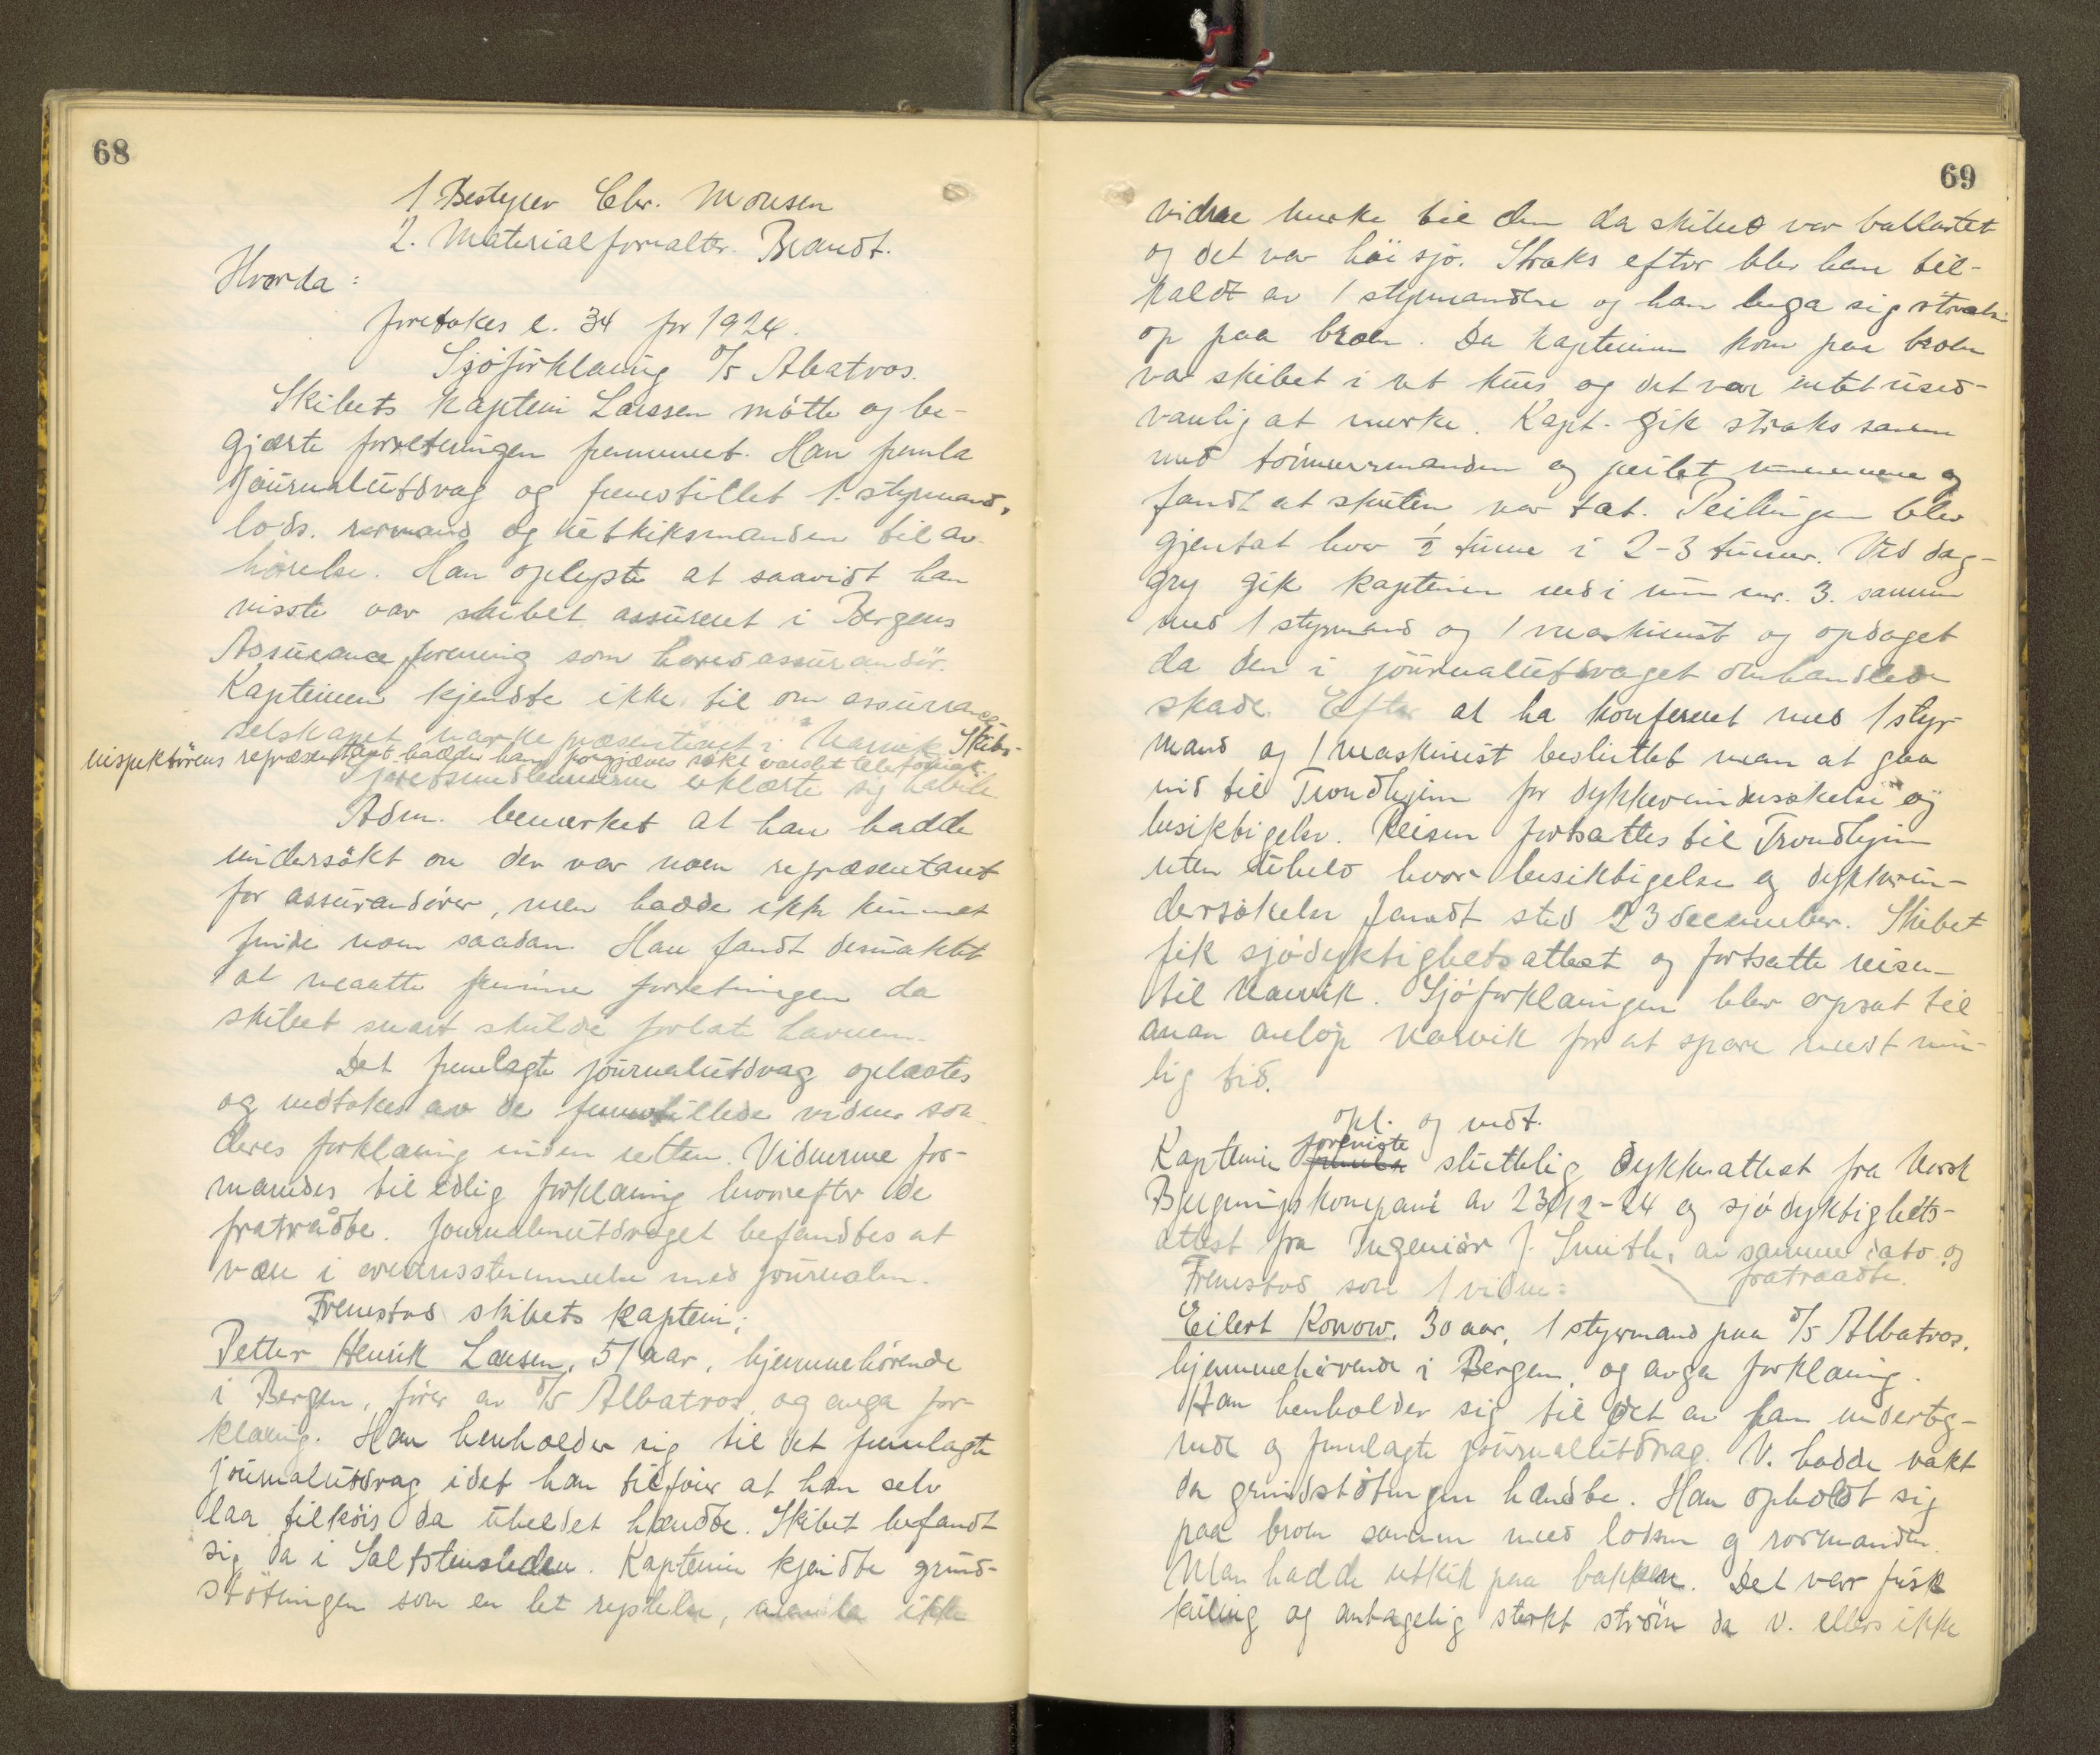 68
1 Bestyrer Chr. Monsen
2. Materialforvalter Brandt.
Hvorda:
foretokes l. 34 for 1924.
Sjöforklaring D/S Albatros.
Skibets kaptein Larssen mötte og be-
gjærte forretningen fremmet. Han fremla
journalutdrag og fremstillet 1. styrmand,
lods. rormand og utkiksmanden til av-
hörelse. Han oplyste at saavidt han
visste var skibet assureret i Bergens
Assuranceforening som hovedassurandör.
Kapteinen kjendte ikke til om assurance-
selskapet var repræsenteret i Narvik. Skibs-
inspektörens repræsentant hadde han forgjæves sökt varslet telefonisk.
Sjöretsmedlemmerne erklærte sig habile.
Adm. bemerket at han hadde
undersökt om der var noen repræsentant
for assurandörer, men hadde ikke kunnet
finde noen saadan. Han fandt desuaktet
at maatte fremme forretningen da
skibet snart skulde forlate havnen.
Det fremlagte journalutdrag oplæstes
og vedtokes av de fremstillede vidner som
deres forklaring inden retten. Vidnerne for-
mandes til edlig forklaring hvorefter de
fratrådte. Journalenutdraget befandtes at
være i overensstemmelse med journalen.
Fremstod skibets kaptein:
Petter Henrik Larsen, 51 aar, hjemmehörende
i Bergen, förer av D/S Albatros og avga for-
klaring. Han henholder sig til det fremlagte
journalutdrag idet han tilföier at han selv
laa tilköis da uheldet hændte. Skibet befandt
sig da i Saltstensleden. Kapteinen kjendte grund-
stötningen som en let rystelse, men la ikke
69
videre merke til den da skibet var ballastet
og det var höi sjö. Straks efter blev han til-
kaldt av 1 styrmanden og han begav sig straks
op paa broen. Da kapteinen kom paa broen
var skibet i ret kurs og det var intet used-
vanlig at merke. Kapt. gik straks sammen
med tömmermanden og peilet rummene og
fandt at skuten var tæt. Peilingen blev
gjentat hver ½ time i 2-3 timer. Ved dag-
gry gik kapteinen ned i rum nr. 3. sammen
med 1 styrmand og 1 maskinist og opdaget
da den i journalutdraget omhandlede
skade. Efter at ha konferert med 1 styr-
mand og 1 maskinist besluttet man at gaa
ind til Trondhjem for dykkerundersökelse og
besiktigelse. Reisen fortsattes til Trondhjem
uten uheld hvor besiktigelse og dykkerun-
dersökelse fandt sted 23 december. Skibet
fik sjödyktighetsattest og fortsatte reisen
til Narvik. Sjöforklaringen blev opsat til
man anlöp Narvik for at spare mest mu-
lig tid.
Opl. og vedt.
Kapteinen foreviste sluttelig dykkerattest fra Norsk
Bjergningskompani av 23/12-24 og sjödyktighets-
attest fra Ingeniör J. Smith, av samme dato, og
fratraadte.
Fremstod som 1 vidne:
Eilert Konow, 30 aar, 1 styrmand paa D/S Albatros,
hjemmehörende i Bergen, og avga forklaring.
Han henholder sig til det av ham underteg-
nede og fremlagte journalutdrag. V. hadde vakt
da grundstötningen hændte. Han opholdt sig
paa broen sammen med losen og rormanden.
Man hadde utkik paa bakken. Det var frisk
kuling og antagelig sterkt ström da V. ellers ikke